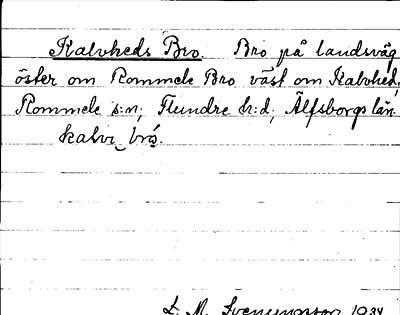 Kalvheds Bro. Bro på landsväg
öster om Rommele Bro väst om Kalvhed,
Rommele s:n; Flundre h:d; Älfsborgs län.
kalvə bró.
L. M. Svenungsson 1934